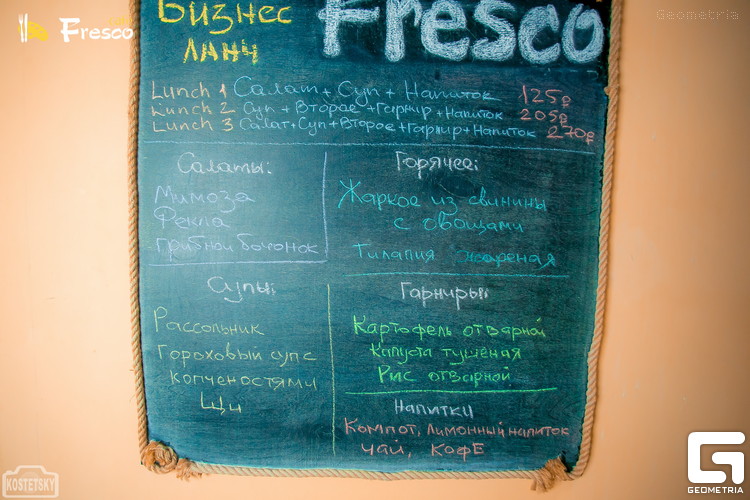 Cafe Fresco
Geometria
Бизнес Fresco
ланч
Lunch 1 Салат + Суп + Напиток 125р
Lunch 2 Суп + Второе + Гарнир + Напиток 205р
Lunch 3 Салат + Суп + Второе + Гарнир + Напиток 270р
Салаты:
Мимоза
Фекла
Грибной бочонок
Горячее:
Жаркое из свинины
с овощами
Тилапия жареная
Супы:
Рассольник
Гороховый суп с
копченостями
Щи
Гарниры:
Картофель отварной
Капуста тушёная
Рис отварной
Напитки
Компот, лимонный напиток
чай, кофе
KOSTETSKY
GEOMETRIA